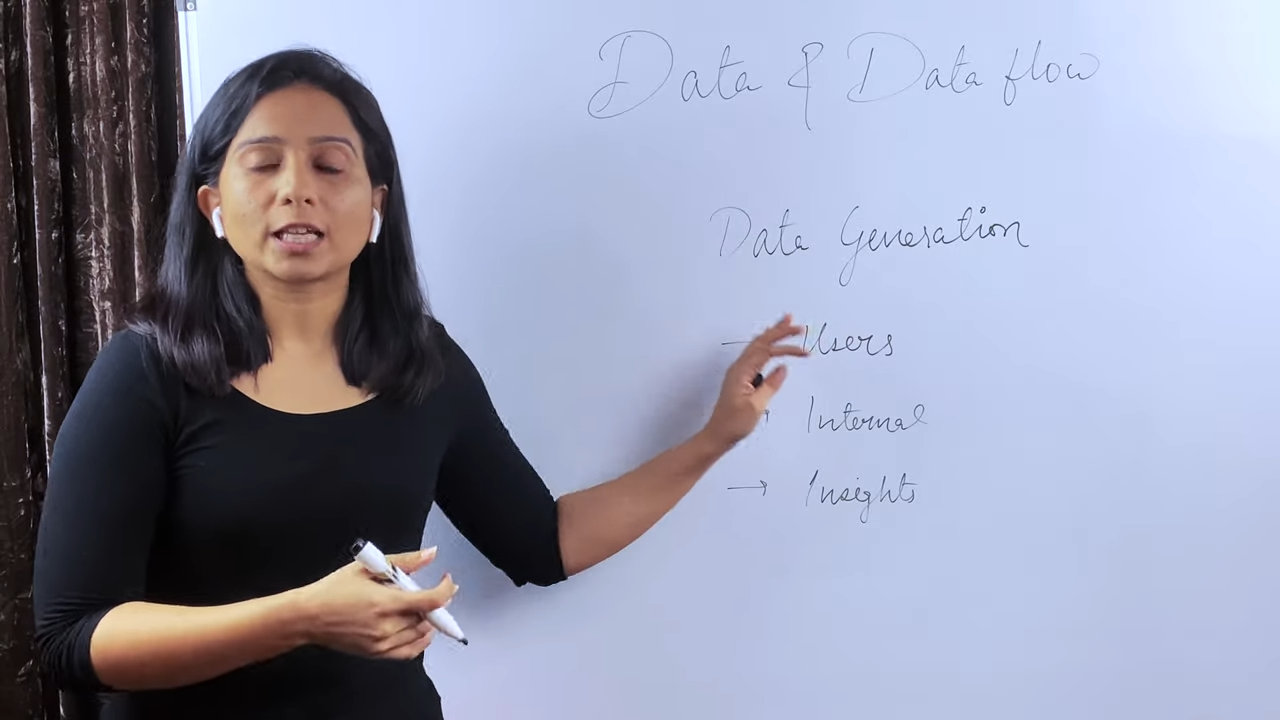 Data & Data flow
Data Generation
→ Users
→ Internal
→ Insights